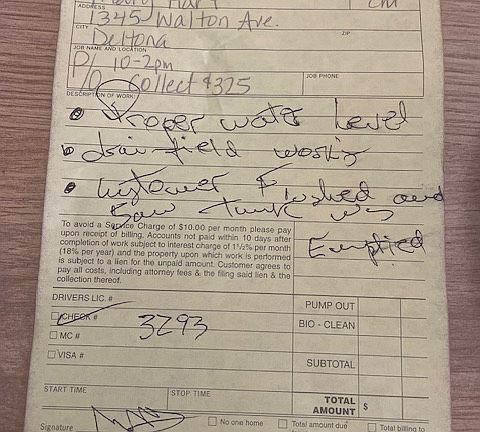 ADDRESS
1345 Walton Ave.
CITY
ZIP
Deltona
JOB NAME AND LOCATION
JOB PHONE
P/O 10-2pm
Collect $325
DESCRIPTION OF WORK:
• Proper water Level
• drainfield works
• Customer Flushed and
saw tank was
Emptied
To avoid a Service Charge of $10.00 per month please pay
upon receipt of billing. Accounts not paid within 10 days after
completion of work subject to interest charge of 1½% per month
(18% per year) and the property upon which work is performed
is subject to a lien for the unpaid amount. Customer agrees to
pay all costs, including attorney fees & the filing said lien & the
collection thereof.
DRIVERS LIC. #
PUMP OUT
☐ CHECK # 3293
BIO - CLEAN
☐ MC #
☐ VISA #
SUBTOTAL
START TIME
STOP TIME
TOTAL
AMOUNT $
Signature
☐ No one home ☐ Total amount due ☐ Total billing to